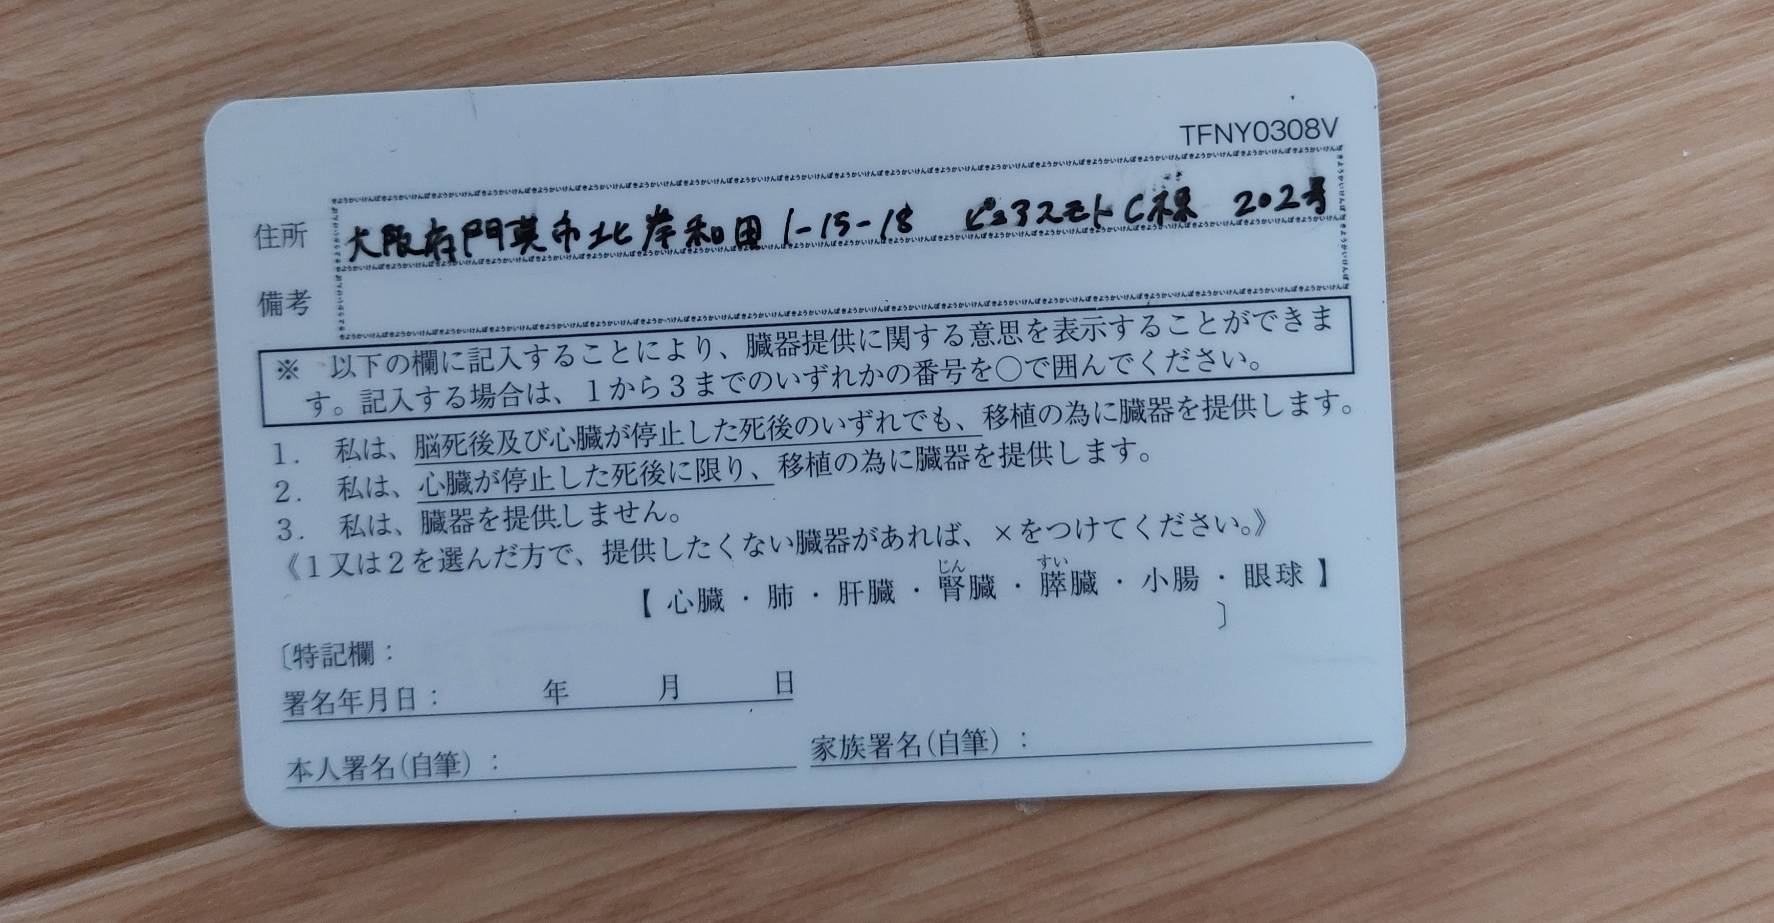 TFNY0308V
住所 大阪府門真市北岸和田1-15-18 ピュアスモトC棟 202号
備考
※ 以下の欄に記入することにより、臓器提供に関する意思を表示することができま
す。記入する場合は、1から3までのいずれかの番号を○で囲んでください。
1. 私は、脳死後及び心臓が停止した死後のいずれでも、移植の為に臓器を提供します。
2. 私は、心臓が停止した死後に限り、移植の為に臓器を提供します。
3. 私は、臓器を提供しません。
《1又は2を選んだ方で、提供したくない臓器があれば、×をつけてください。》
【 心臓 ・ 肺 ・ 肝臓 ・ 腎臓 ・ 膵臓 ・ 小腸 ・ 眼球 】
じん すい
〔特記欄： 〕
署名年月日： 年 月 日
本人署名(自筆)： 家族署名(自筆)：